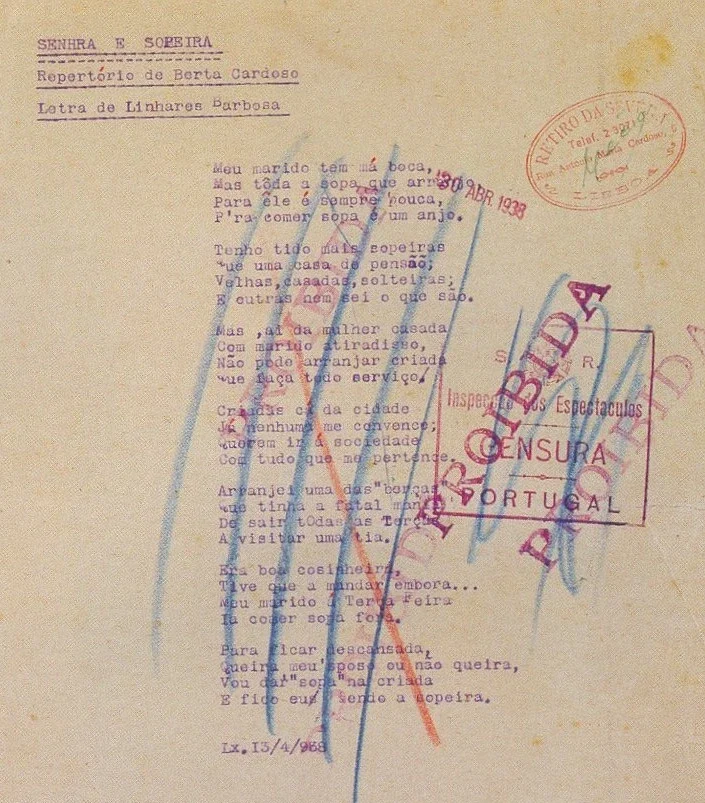 SENHRA E SOPEIRA
Repertório de Berta Cardoso
Letra de Linhares Barbosa
RETIRO DA SEVERA
Telef.
Rua António Maria Cardoso,
LISBOA
30 ABR. 1938
Meu marido tem má boca,
Mas tôda a sopa que
Para êle é sempre pouca,
P'ra comer sopa é um anjo.
Tenho tido mais sopeiras
que uma casa de pensão;
Velhas,casadas,solteiras;
E outras nem sei o que são.
Mas ,ai da mulher casada
Com marido atiradisso,
Não pode arranjar criada
que faça todo serviço,
Criadas cá da cidade
Já nenhuma me convence;
querem ir á sociedade
Com tudo que me pertence.
Arranjei uma das"berças"
que tinha a fatal mania
De sair tOdas as Terças
A visitar uma tia.
Era boa cosinheira,
Tive que a mandar embora...
Meu marido á Terça Feira
Ia comer sopa fora.
Para ficar descansada,
Queira meu'sposo ou não queira,
Vou dar"sopa"na criada
E fico eu sendo a sopeira.
Lx.I3/4/938
S. R.
Inspecção dos Espectaculos
CENSURA
PORTUGAL
PROIBIDA
PROIBIDA
PROIBIDA
PROIBIDA